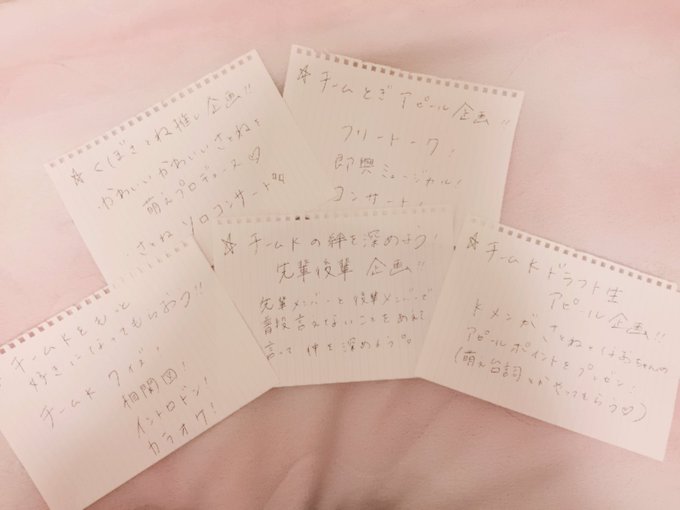 ☆くぼさとね推し企画!!
かわいいかわいいさとねを
萌えプロデュース♡
さとねソロコンサート
☆チームとぎアピール企画!!
フリートーク!
即興ミュージカル!
コンサート!
チームKをもっと
好きになってもらおう!!
チームKクイズ!
相関図!
イントロドン!
カラオケ!
☆チームKの絆を深めよう!
先輩後輩企画!!
先輩メンバーと後輩メンバーで
普段言えないことをあえて
言って絆を深めよう
☆チームKドラフト生
アピール企画!!
Kメンがさとねとはおちゃんの
アピールポイントをプレゼン!
(萌え台詞とかやってもらう♡)